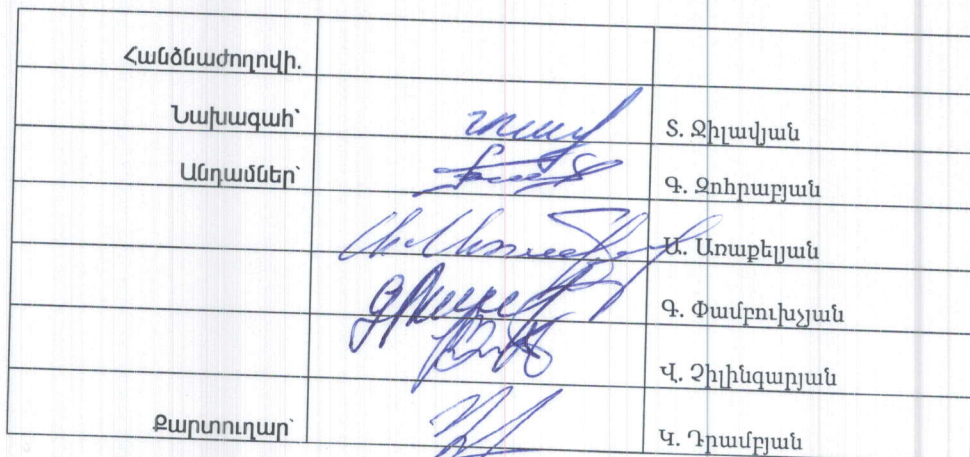 Հանձնաժողովի.
Նախագահ՝ Տ. Ջիլավյան
Անդամներ՝ Գ. Զոհրաբյան
Ա. Առաքելյան
Գ. Փամբուխչյան
Վ. Չիլինգարյան
Քարտուղար՝ Կ. Դրամբյան